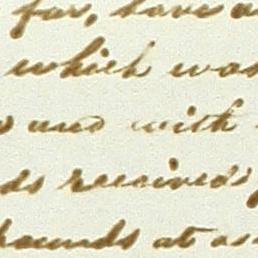 for, have a
which was
and with
ds received
pounds at as